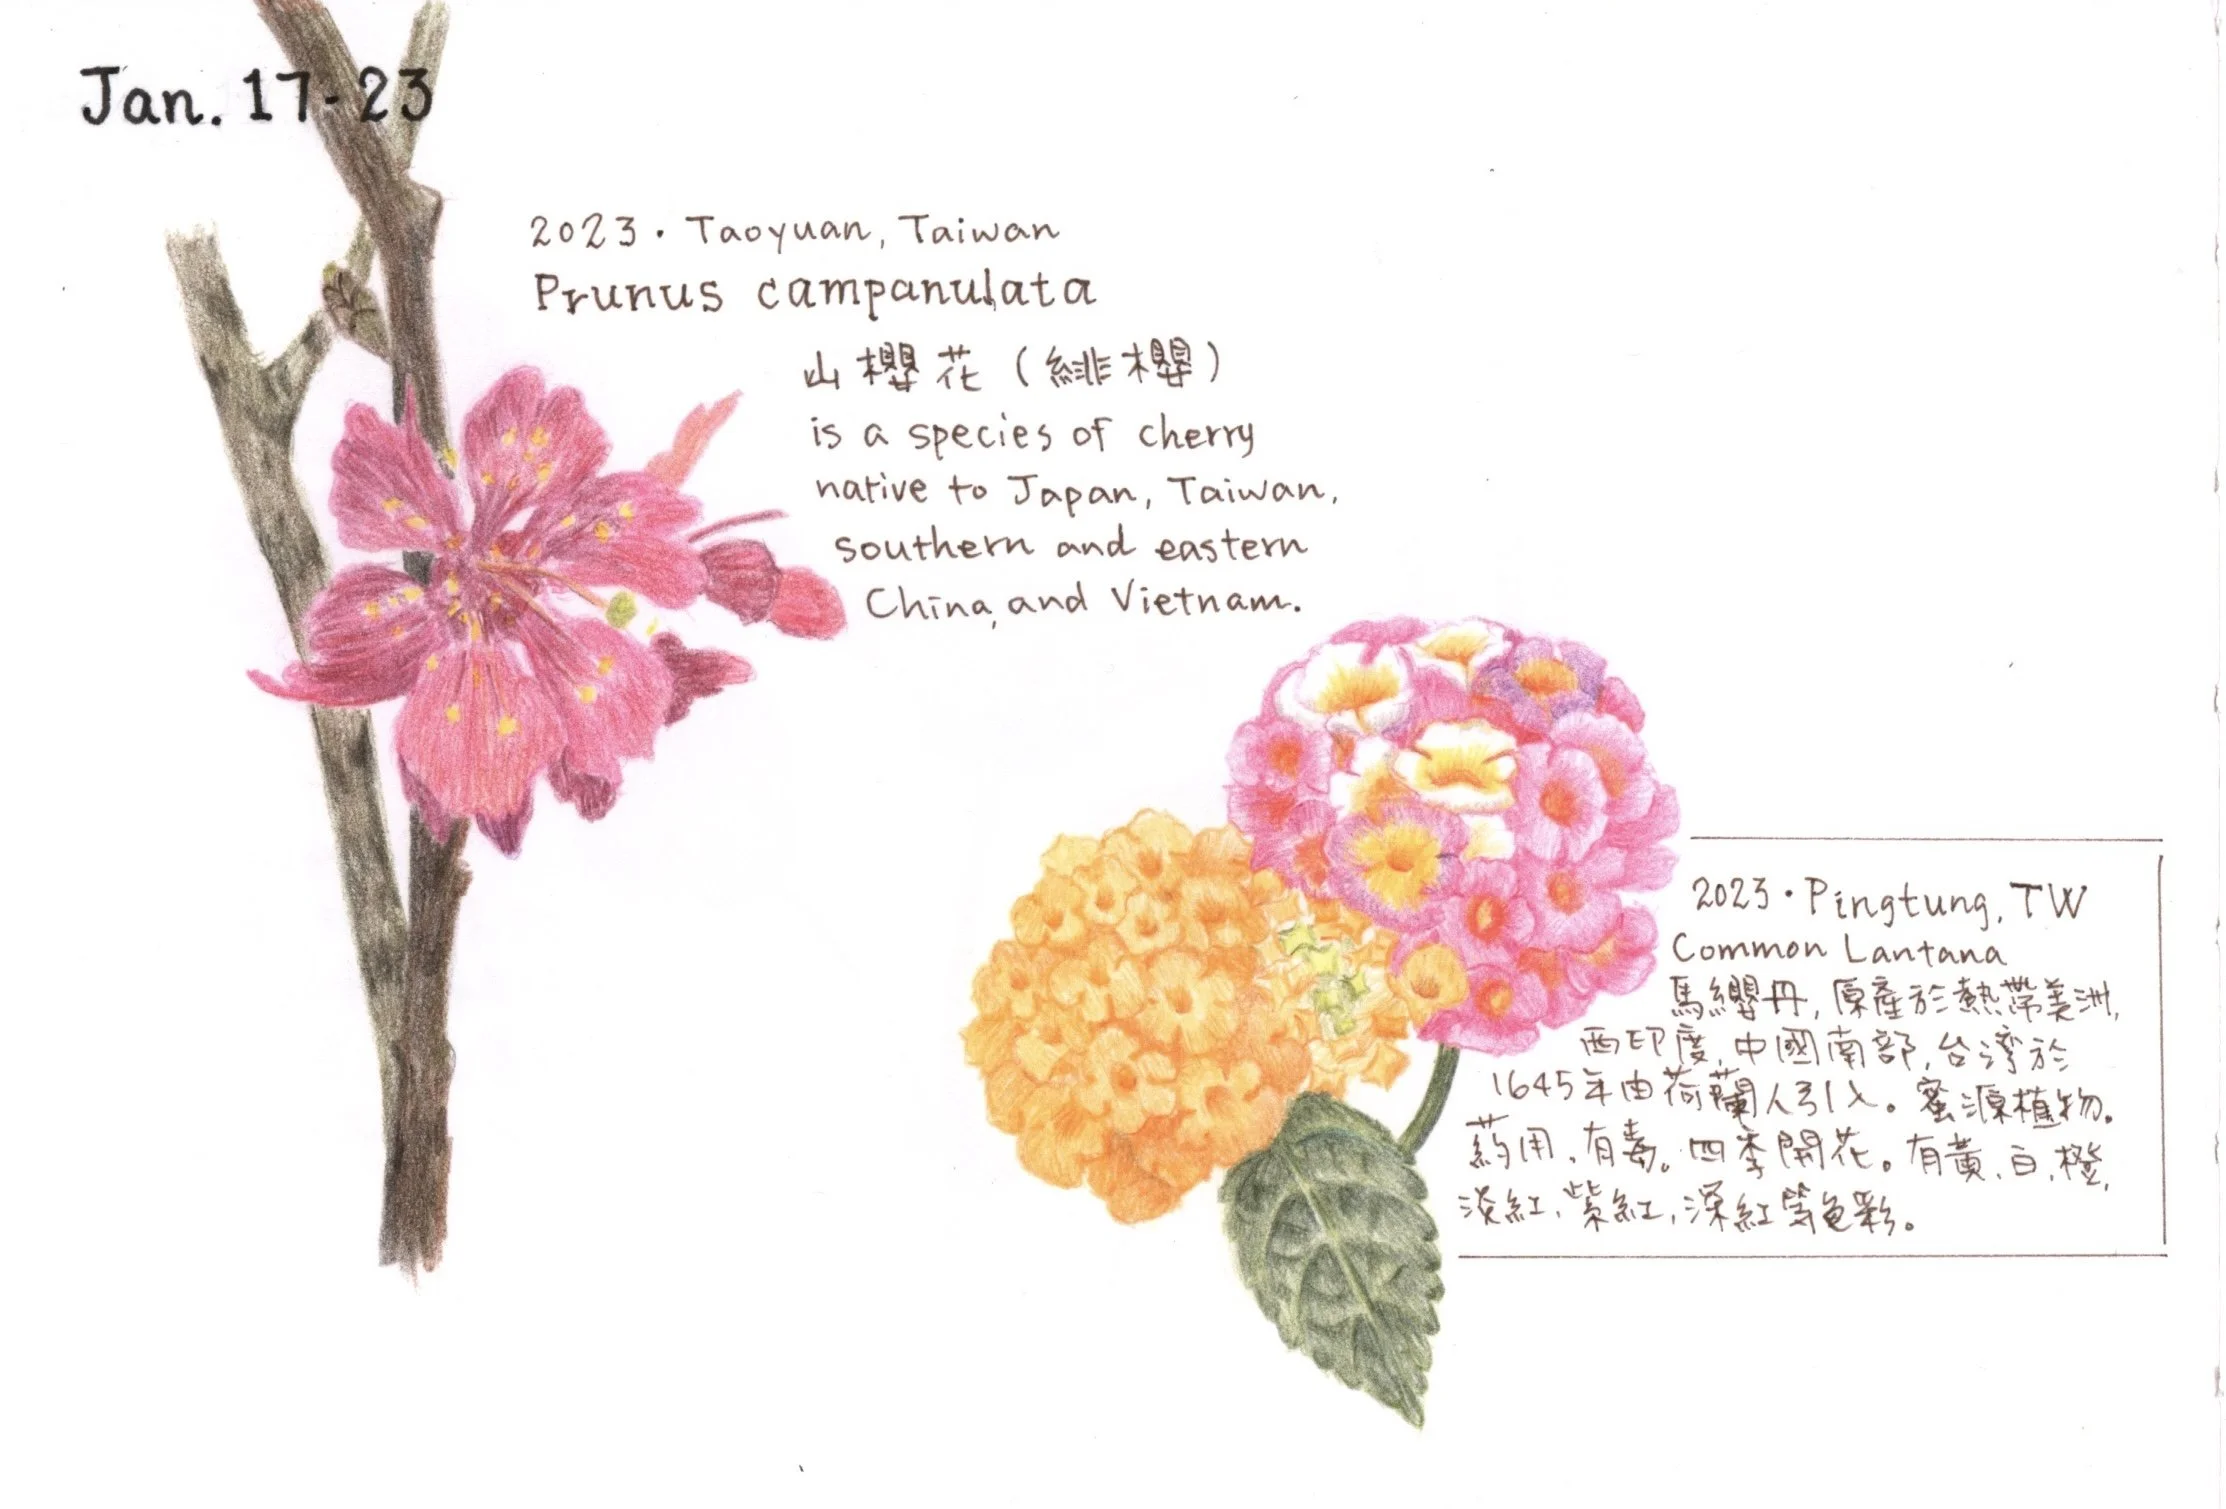 Jan. 17-23
2023・Taoyuan, Taiwan
Prunus campanulata
山櫻花（緋櫻）
is a species of cherry
native to Japan, Taiwan,
southern and eastern
China, and Vietnam.
2023・Pingtung, TW
Common Lantana
馬纓丹, 原產於熱帶美洲,
西印度, 中國南部, 台灣於
1645年由荷蘭人引入。蜜源植物。
药用、有毒。四季開花。有黃、白、橙,
淡紅、紫紅, 深紅等色彩。